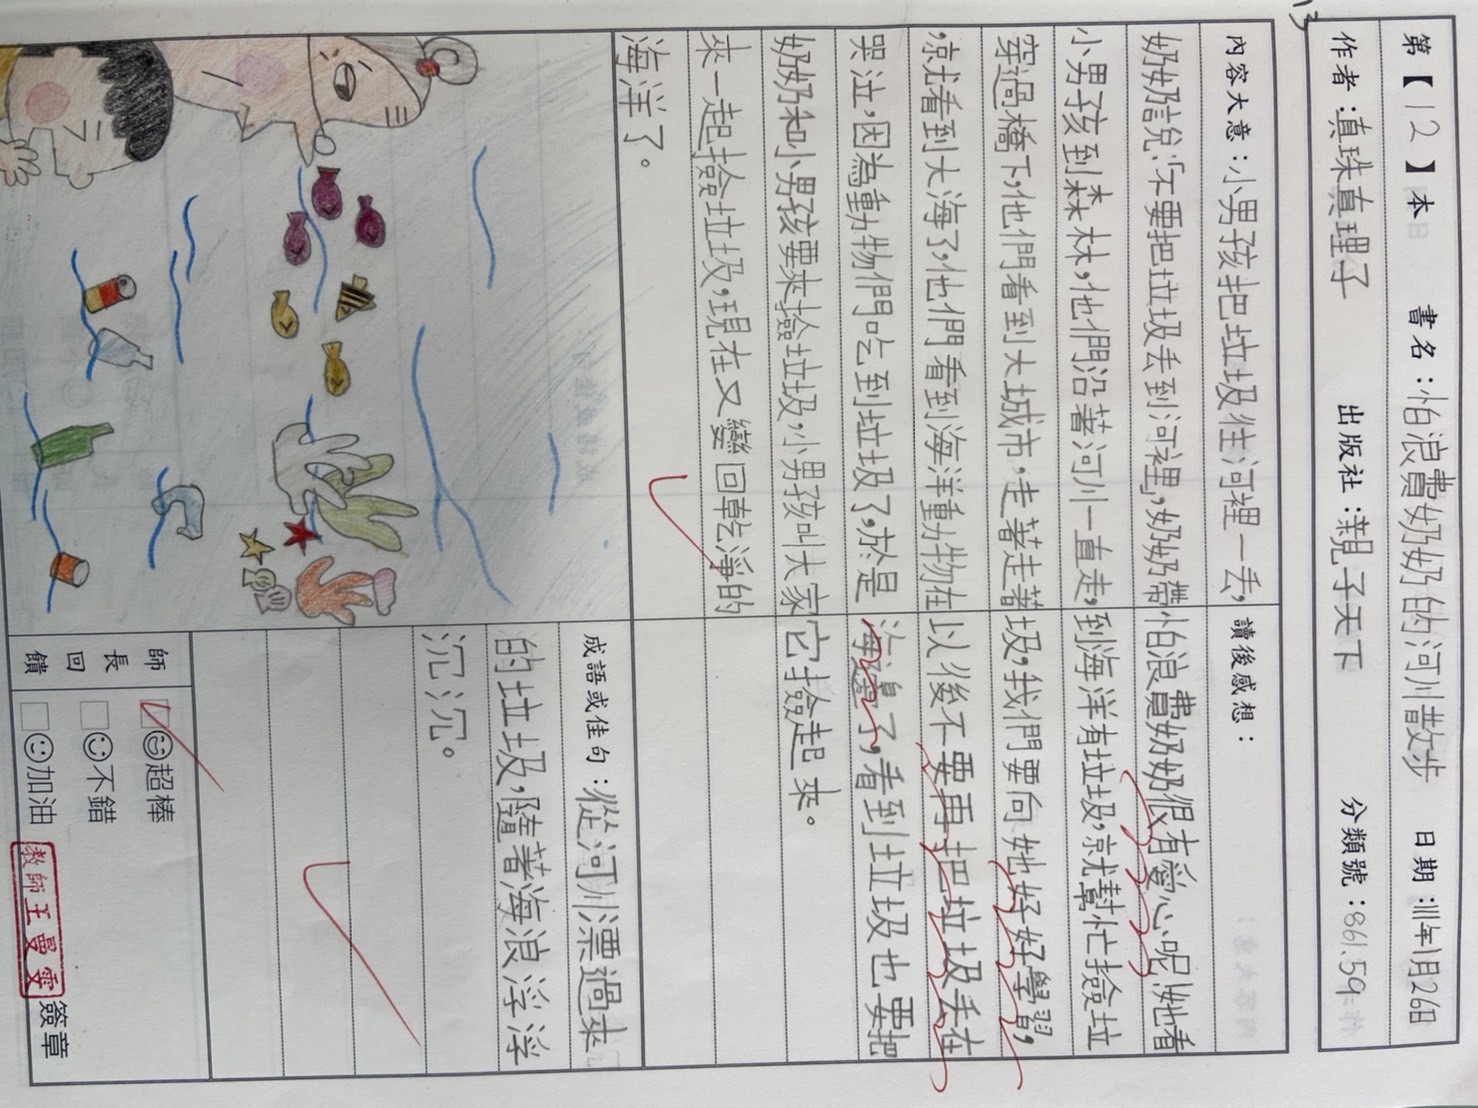 第【12】本 書名:怕浪費奶奶的河川散步 日期:111年1月26日
作者:真珠真理子 出版社:親子天下 分類號:861.59
13
內容大意:小男孩把垃圾往河裡一丢,
奶奶說:「不要把垃圾丟到河裡」,奶奶帶
小男孩到森林,他們沿著河川一直走,
穿過橋下,他們看到大城市,走著走著
,就看到大海了,他們看到海洋動物在
哭泣,因為動物們吃到垃圾了,於是
奶奶和小男孩要來撿垃圾,小男孩叫大家
來一起撿垃圾,現在又變回乾淨的
海洋了。
讀後感想:
怕浪費奶奶很有愛心呢!她看
到海洋有垃圾,就幫忙撿垃
圾,我們要向她好好學習,
以後不要再把垃圾丟在
海邊了,看到垃圾也要把
它撿起來。
成語或佳句:從河川漂過來
的垃圾,隨著海浪浮浮
沉沉。
師長回饋
超棒
不錯
加油
教師王曼雯
簽章